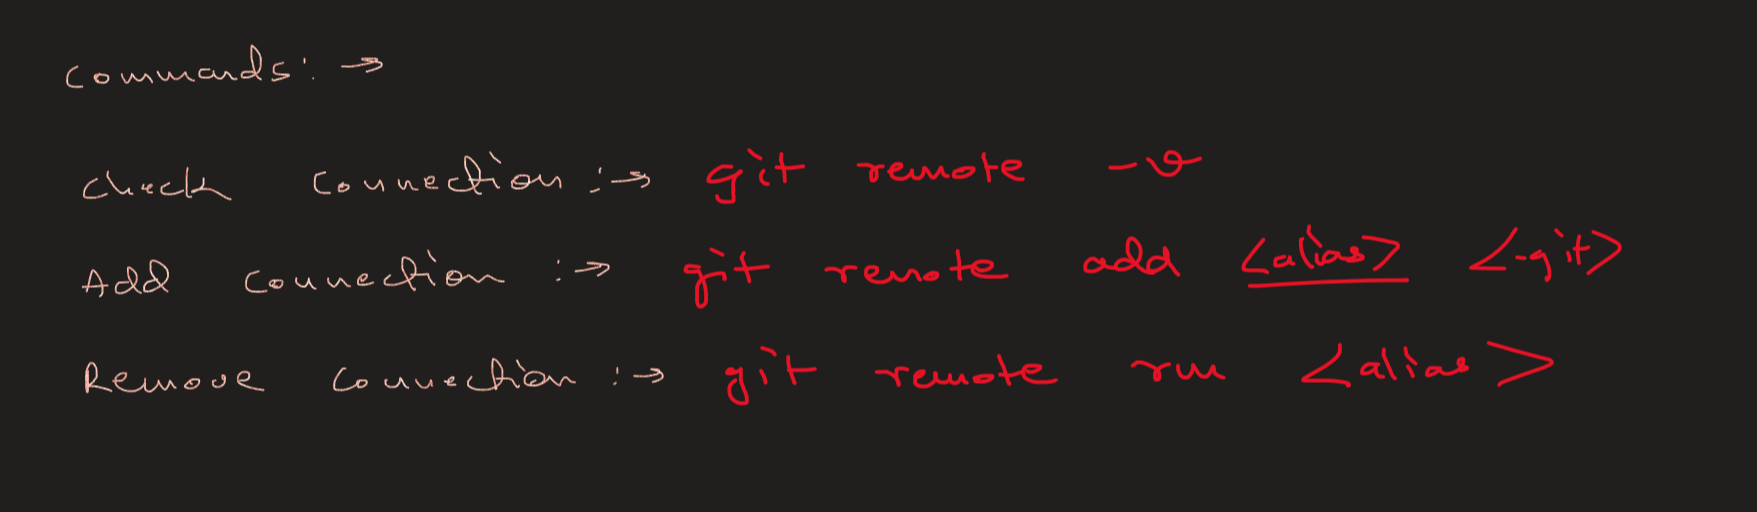 Commands: →
Check Connection :→ git remote -v
Add Connection :→ git remote add <alias> <-git>
Remove Connection :→ git remote rm <alias>